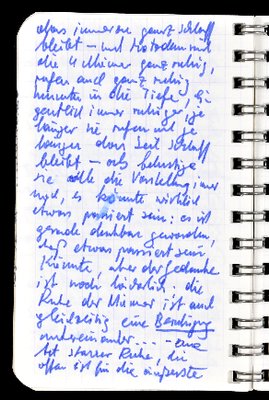 dass immer ganz schlaff
bleibt – und trotzdem sind
die 4 Männer ganz ruhig,
rufen auch ganz ruhig
hinunter in die Tiefe,
immer ruhiger, je
länger sie rufen und je
länger das Seil schlaff
bleibt – als belustige
sie alle die Vorstellung immer
es könnte wirklich
etwas passiert sein: es ist
gerade denkbar geworden,
daß etwas passiert sein
könnte, aber der Gedanke
ist noch lächerlich: die
Ruhe der Männer ist auch
gleichzeitig eine Beruhigung
untereinander.... – eine
Art starrer Ruhe, die
offen ist für die äußerste